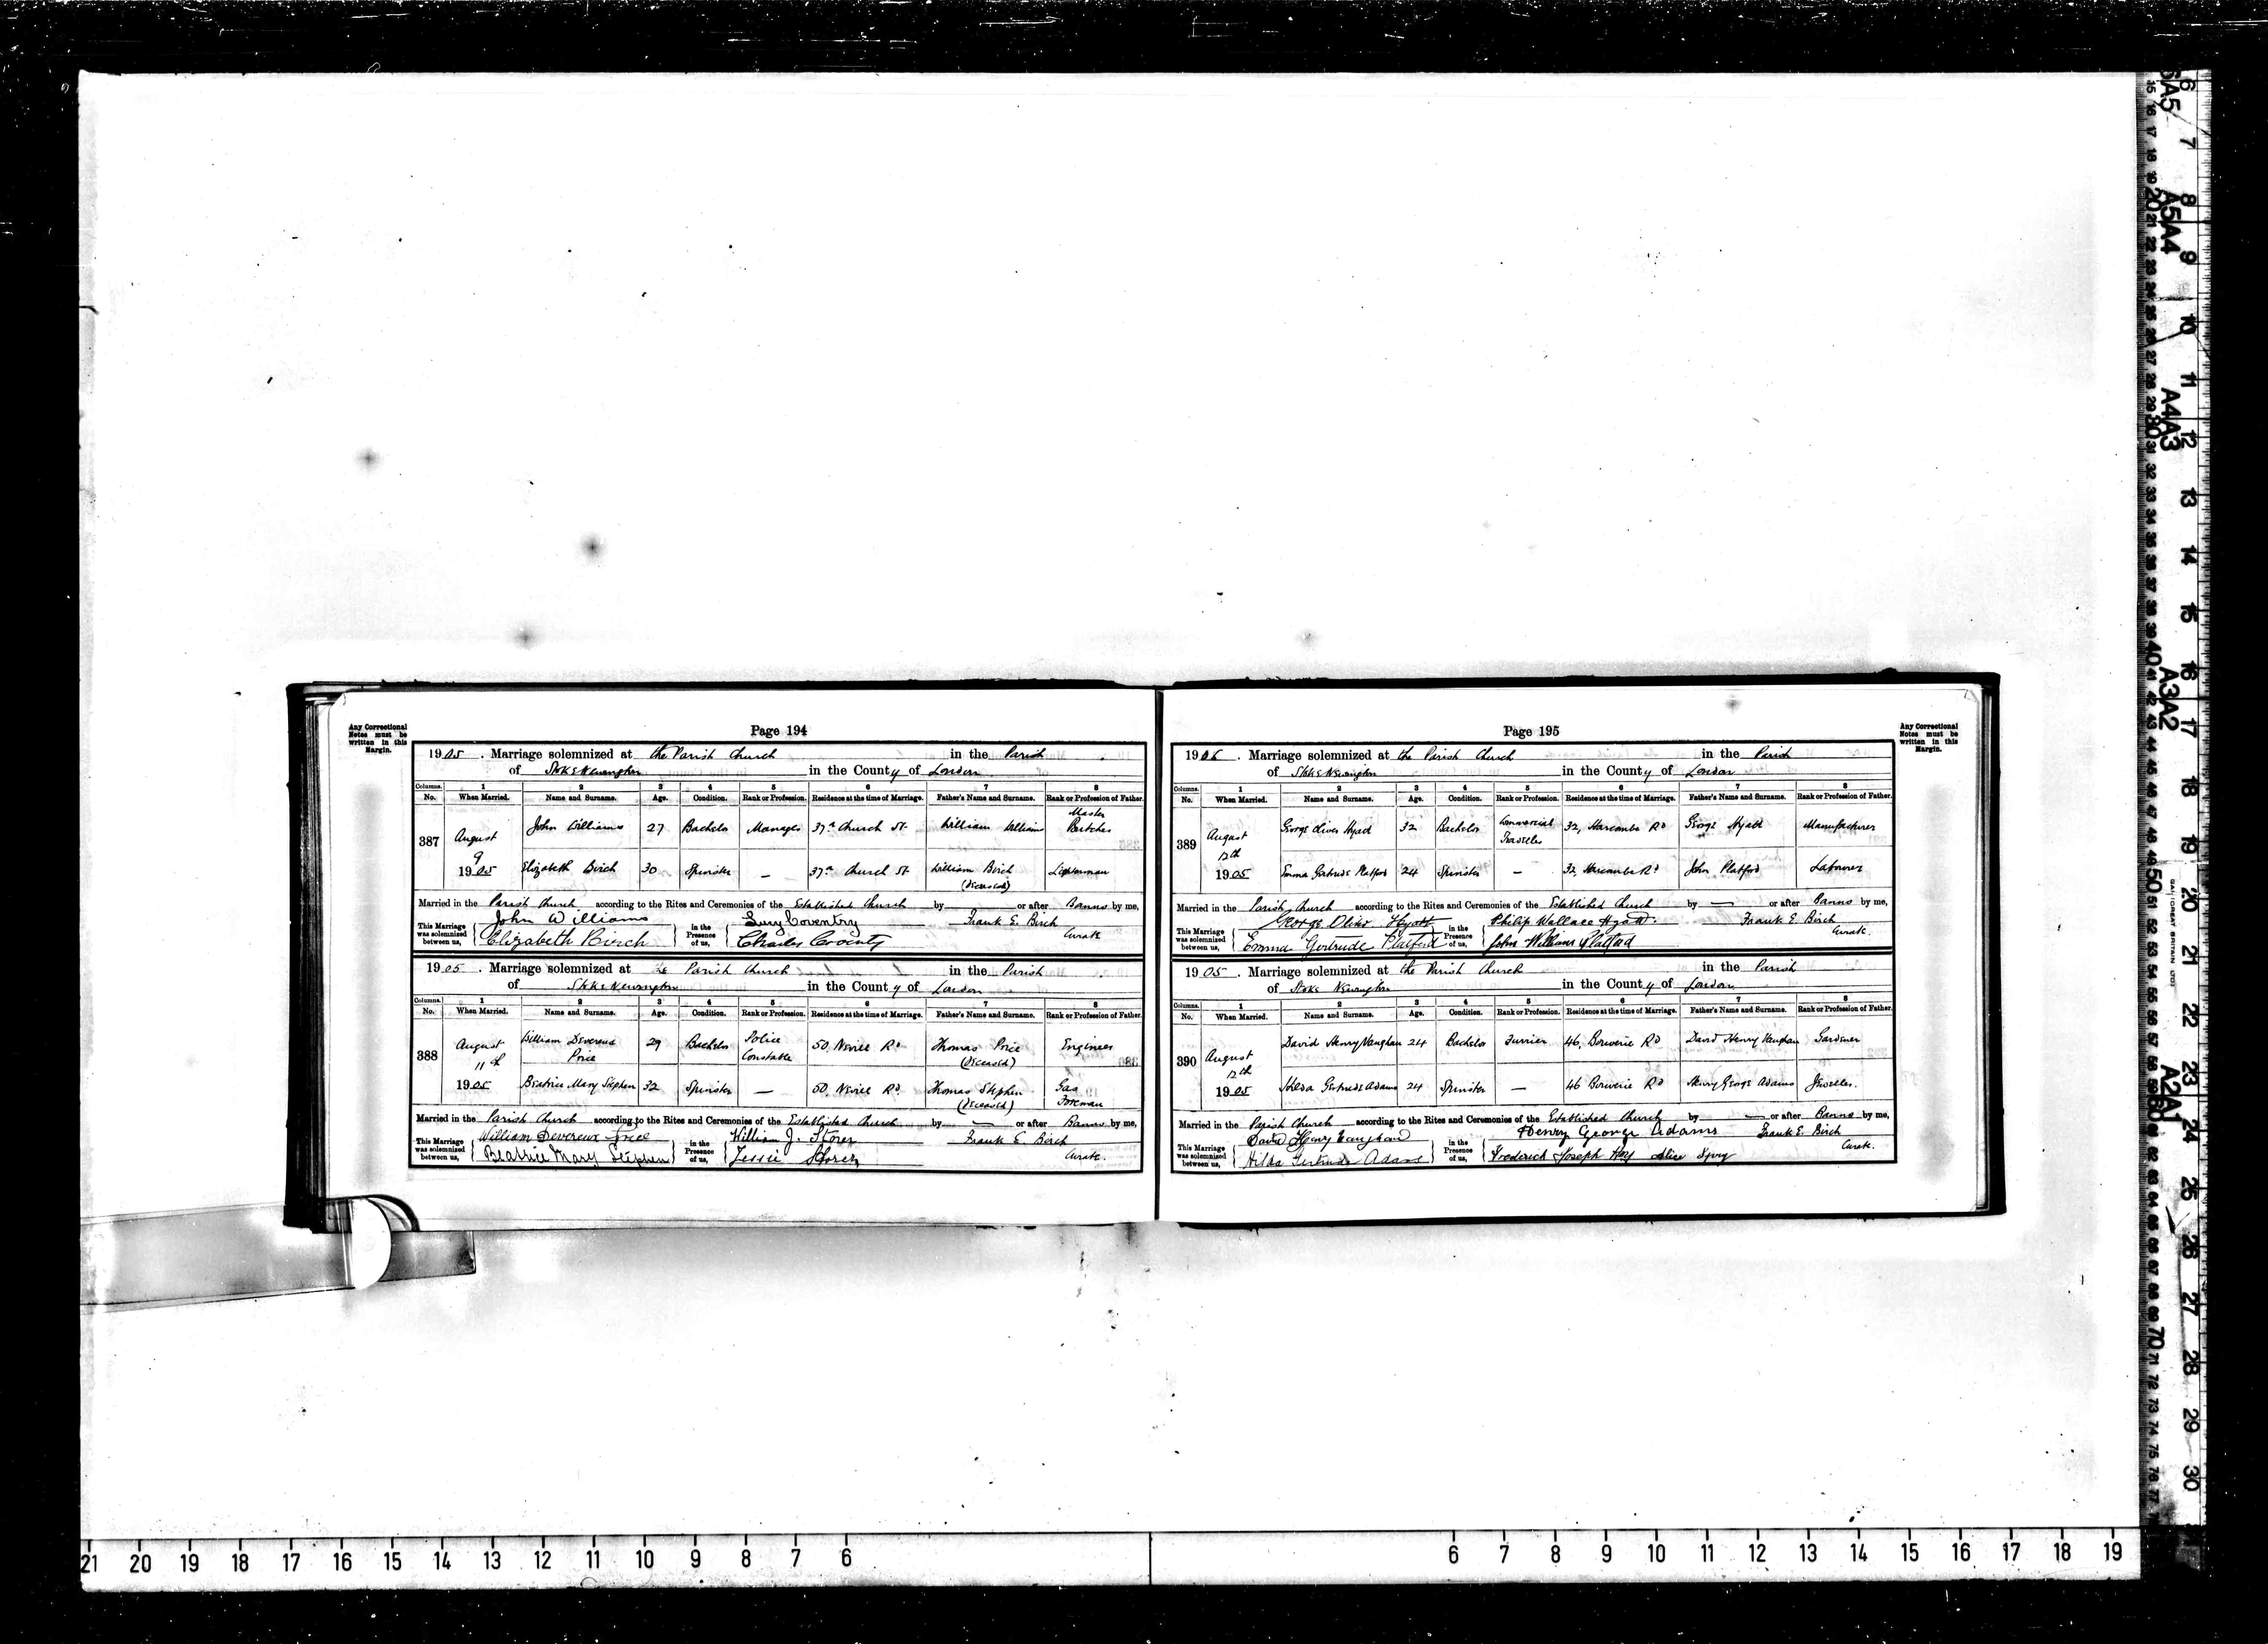 Page 194
Any Correctional
Notes must be
written in this
Margin.
1905. Marriage solemnized at the Parish Church in the Parish
of Stoke Newington in the County of London
Columns. 1 2 3 4 5 6 7 8
No. When Married. Name and Surname. Age. Condition. Rank or Profession. Residence at the time of Marriage. Father's Name and Surname. Rank or Profession of Father.
387 August 9 1905
John Williams 27 Bachelor Manager 37a Church St William Williams Master
Elizabeth Birch 30 Spinster — 37a Church St William Birch (deceased)
Married in the Parish Church according to the Rites and Ceremonies of the Established Church by — or after Banns by me,
This Marriage was solemnized between us, John Williams Elizabeth Birch in the Presence of us, Lucy Coventry Charles Coventry Frank E. Birch Curate
1905. Marriage solemnized at the Parish Church in the Parish
of Stoke Newington in the County of London
Columns. 1 2 3 4 5 6 7 8
No. When Married. Name and Surname. Age. Condition. Rank or Profession. Residence at the time of Marriage. Father's Name and Surname. Rank or Profession of Father.
388 August 11th 1905
William Devereux Price 29 Bachelor Police Constable 50, Nevill Rd Thomas Price (deceased) Engineer
Beatrice Mary Stephen 32 Spinster — 50. Nevill Rd. Thomas Stephen (deceased) Gas Foreman
Married in the Parish Church according to the Rites and Ceremonies of the Established Church by — or after Banns by me,
This Marriage was solemnized between us, William Devereux Price Beatrice Mary Stephen in the Presence of us, William J. Storer Jessie Storer Frank E. Birch Curate.
Page 195
Any Correctional
Notes must be
written in this
Margin.
1905. Marriage solemnized at the Parish Church in the Parish
of Stoke Newington in the County of London
Columns. 1 2 3 4 5 6 7 8
No. When Married. Name and Surname. Age. Condition. Rank or Profession. Residence at the time of Marriage. Father's Name and Surname. Rank or Profession of Father.
389 August 12th 1905
George Oliver Hyatt 32 Bachelor Commercial Traveller 32, Harcombe Rd George Hyatt Manufacturer
Emma Gertrude Platford 24 Spinster — 32, Harcombe Rd John Platford Labourer
Married in the Parish Church according to the Rites and Ceremonies of the Established Church by — or after Banns by me,
This Marriage was solemnized between us, George Oliver Hyatt Emma Gertrude Platford in the Presence of us, Philip Wallace Hyatt. John William Platford Frank E. Birch Curate.
1905. Marriage solemnized at the Parish Church in the Parish
of Stoke Newington in the County of London
Columns. 1 2 3 4 5 6 7 8
No. When Married. Name and Surname. Age. Condition. Rank or Profession. Residence at the time of Marriage. Father's Name and Surname. Rank or Profession of Father.
390 August 12th 1905
David Henry Vaughan 24 Bachelor Furrier 46, Bouverie Rd David Henry Vaughan Gardener
Hilda Gertrude Adams 24 Spinster — 46 Bouverie Rd Henry George Adams Jeweller.
Married in the Parish Church according to the Rites and Ceremonies of the Established Church by — or after Banns by me,
This Marriage was solemnized between us, David Henry Vaughan Hilda Gertrude Adams in the Presence of us, Henry George Adams Frederick Joseph Alice Frank E. Birch Curate.
21 20 19 18 17 16 15 14 13 12 11 10 9 8 7 6 6 7 8 9 10 11 12 13 14 15 16 17 18 19